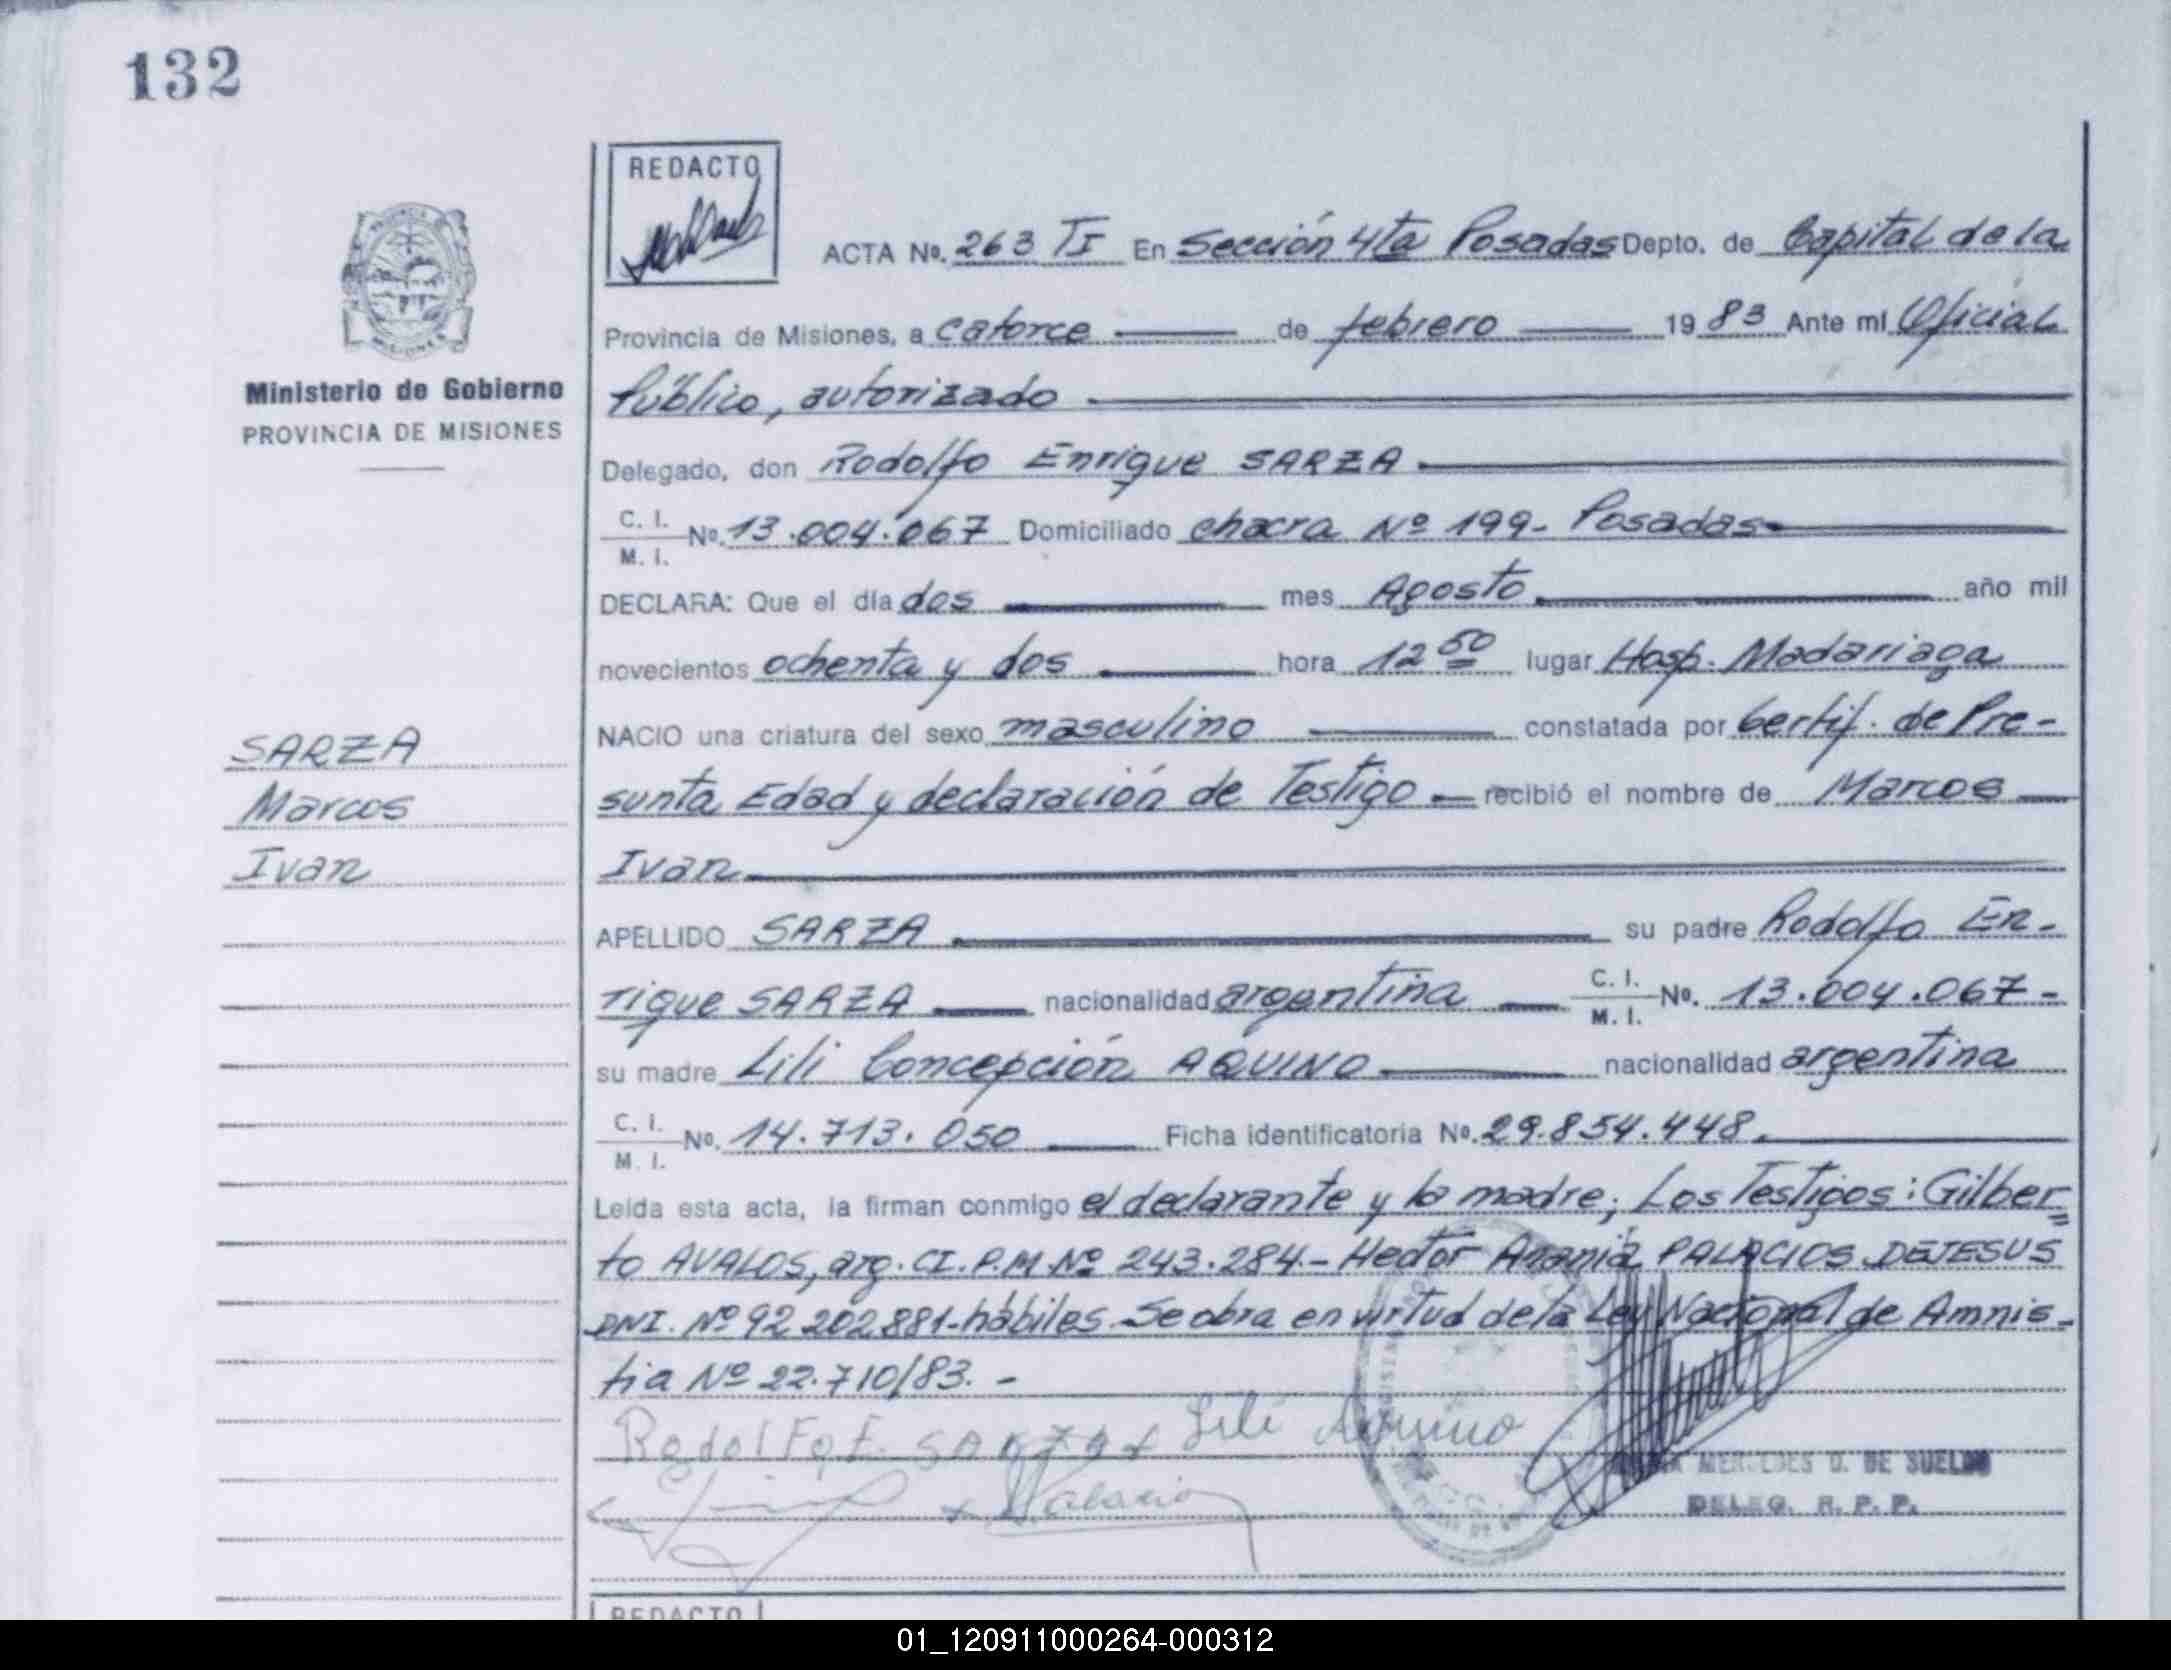 132
REDACTO
ACTA Nº. 263 TI En Sección 4ta Posadas Depto. de Capital de la
Provincia de Misiones, a catorce de febrero 19 83 Ante mi Oficial
Público, autorizado
Ministerio de Gobierno
PROVINCIA DE MISIONES
Delegado, don Rodolfo Enrique SARZA
C. I.
M. I.
Nº. 13.004.067 Domiciliado chacra Nº 199- Posadas
DECLARA: Que el día dos mes Agosto año mil
novecientos ochenta y dos hora 12 50 lugar Hosp. Madariaga
NACIO una criatura del sexo masculino constatada por Certif. de Pre-
sunta Edad y declaración de Testigo recibió el nombre de Marcos
Ivan
SARZA
Marcos
Ivan
APELLIDO SARZA su padre Rodolfo En-
rique SARZA nacionalidad argentina C. I. M. I. Nº. 13.004.067-
su madre Lili Concepción AQUINO nacionalidad argentina
C. I.
M. I.
Nº. 14.713.050 Ficha identificatoria Nº. 29.854.448.
Leída esta acta, la firman conmigo el declarante y la madre; Los Testigos: Gilber
to AVALOS, arg. CI. P.M Nº 243.284.- Hector Anania PALACIOS DEJESUS
DNI. Nº 92 202 881-hábiles. Se obra en virtud de la Ley Nacional de Amnis-
tia Nº 22.710/83. -
Rodolfo E. SARZA Lili Aquino
Palacio
MERCEDES D. DE SUELDO
DELEG. R. P. P.
REDACTO
01_120911000264-000312